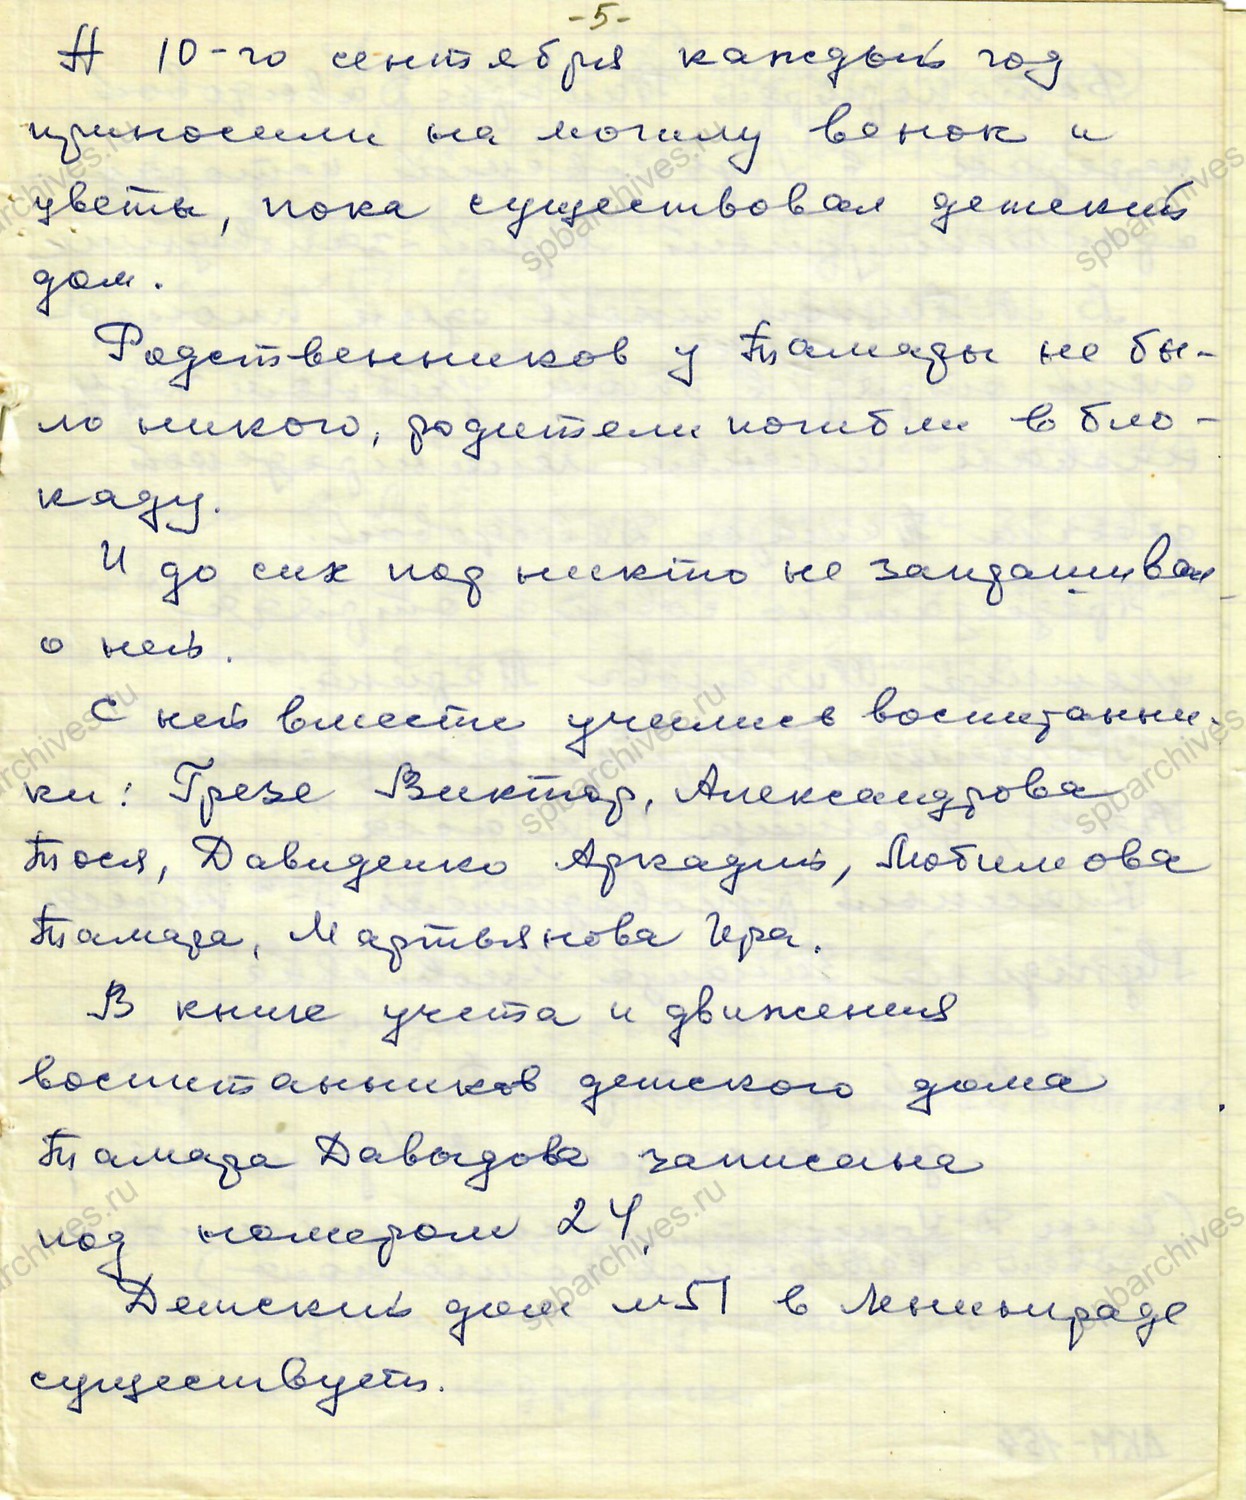 -5-
А 10-го сентября каждый год
приносили на могилу венок и
цветы, пока существовал детский
дом.
Родственников у Тамары не бы-
ло никого, родители погибли в бло-
каду.
И до сих пор никто не запрашивал
о ней.
С ней вместе учились воспитанни-
ки: Грезе Виктор, Александрова
Тося, Давиденко Аркадий, Любимова
Тамара, Мартьянова Ира.
В книге учета и движения
воспитанников детского дома
Тамара Давыдова записана
под номером 24.
Детский дом № 51 в Ленинграде
существует.
spbarchives.ru